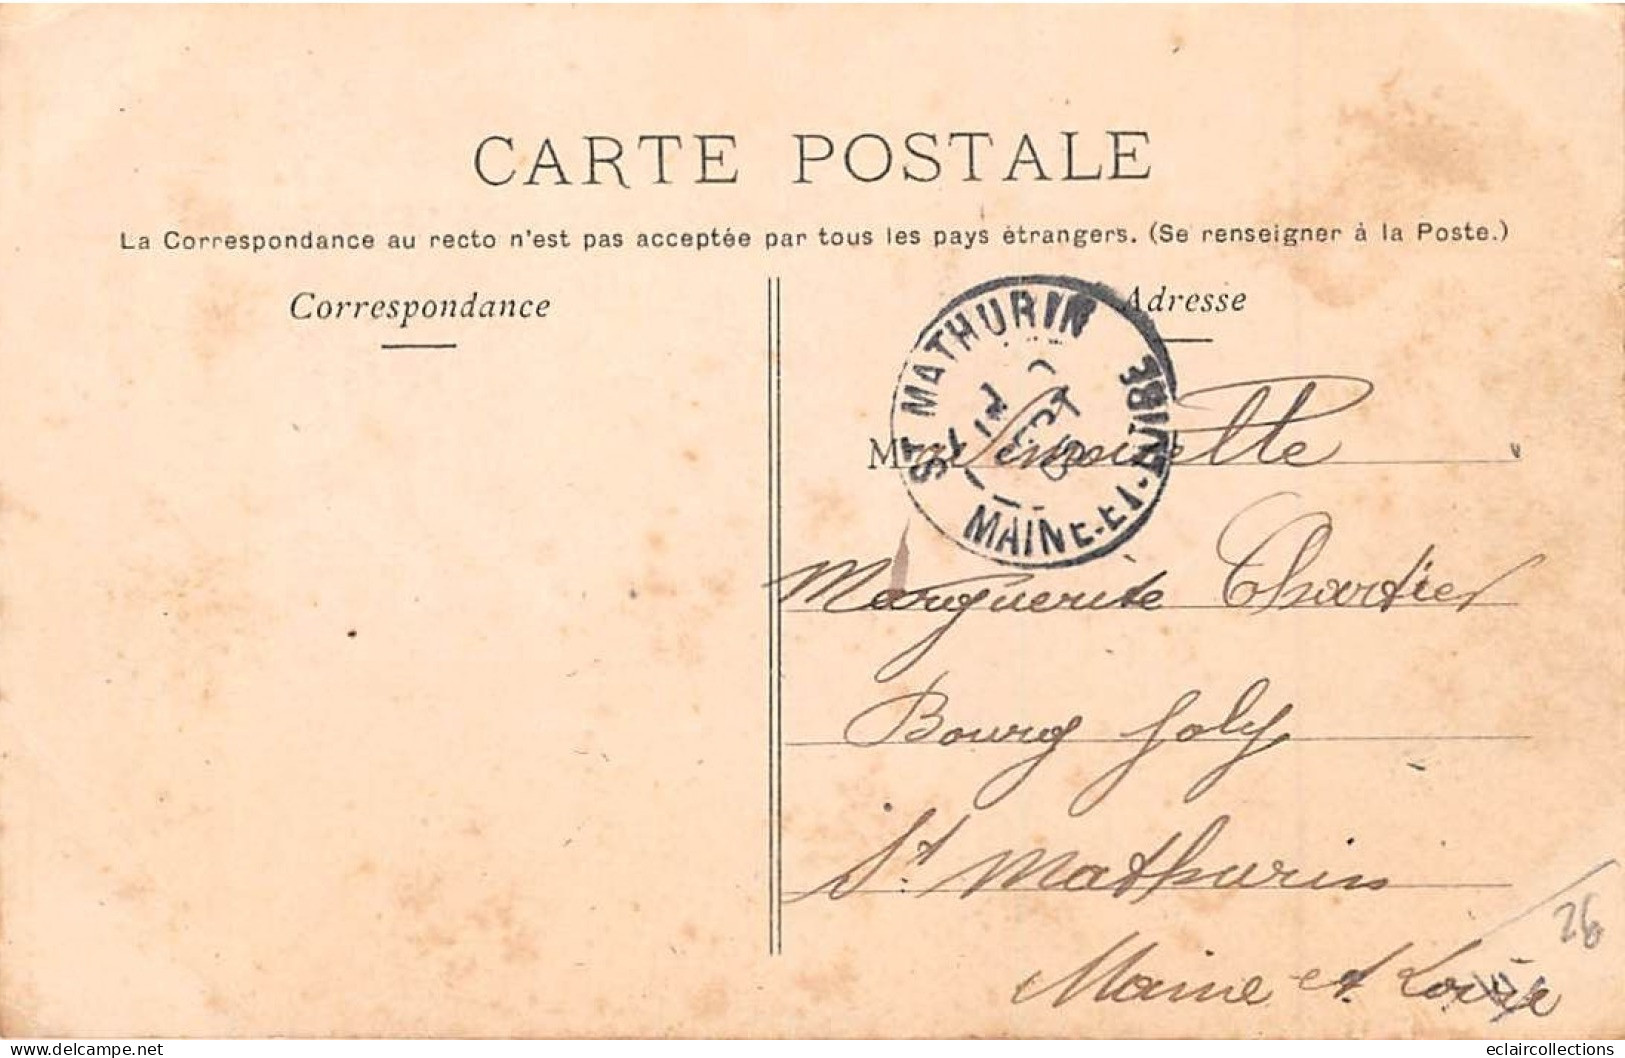 CARTE POSTALE
La Correspondance au recto n'est pas acceptée par tous les pays étrangers. (Se renseigner à la Poste.)
Correspondance
Adresse
ST MATHURIN
MAINE-ET-LOIRE
Mademoiselle
Marguerite Chartier
Bourg Joly
St Mathurin
Maine et Loire
26
delcampe.net
eclaircollections